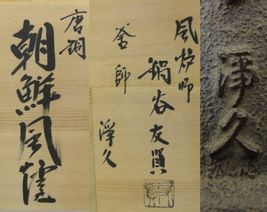 唐銅
朝鮮風炉
風炉師
鍋谷友賢
釜師
浄久
淨久